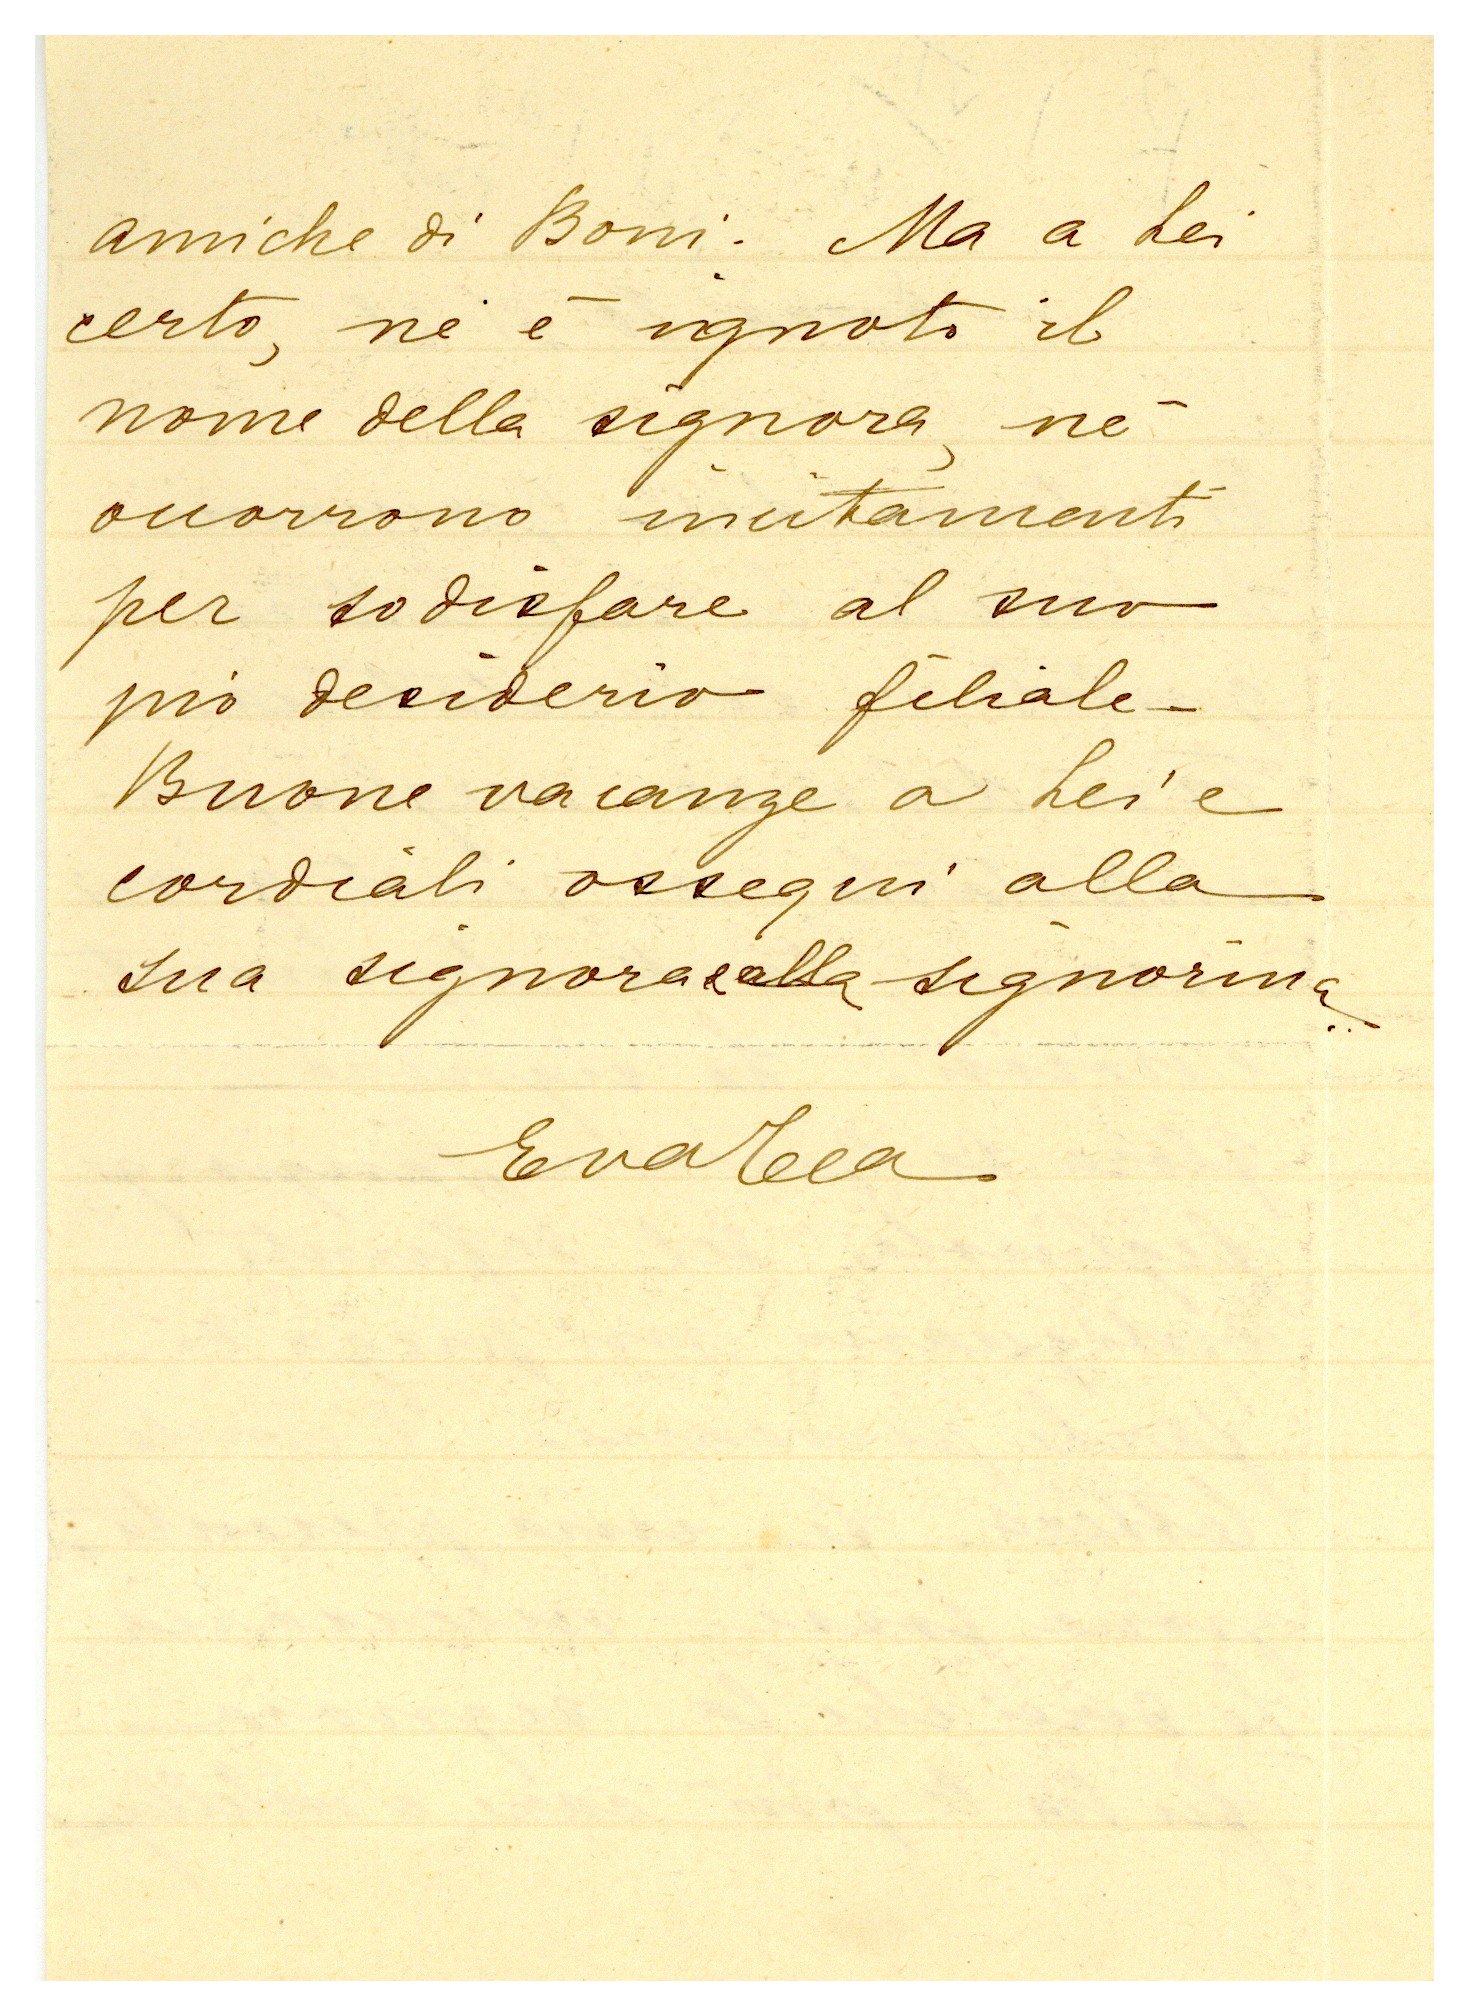 amiche di Boni. Ma a Lei
certo, nè è ignoto il
nome della signora, nè
occorrono incitamenti
per sodisfare al suo
pio desiderio filiale -
Buone vacanze a Lei e
cordiali ossequi alla
sua signora e alla signorina
Eva Tea